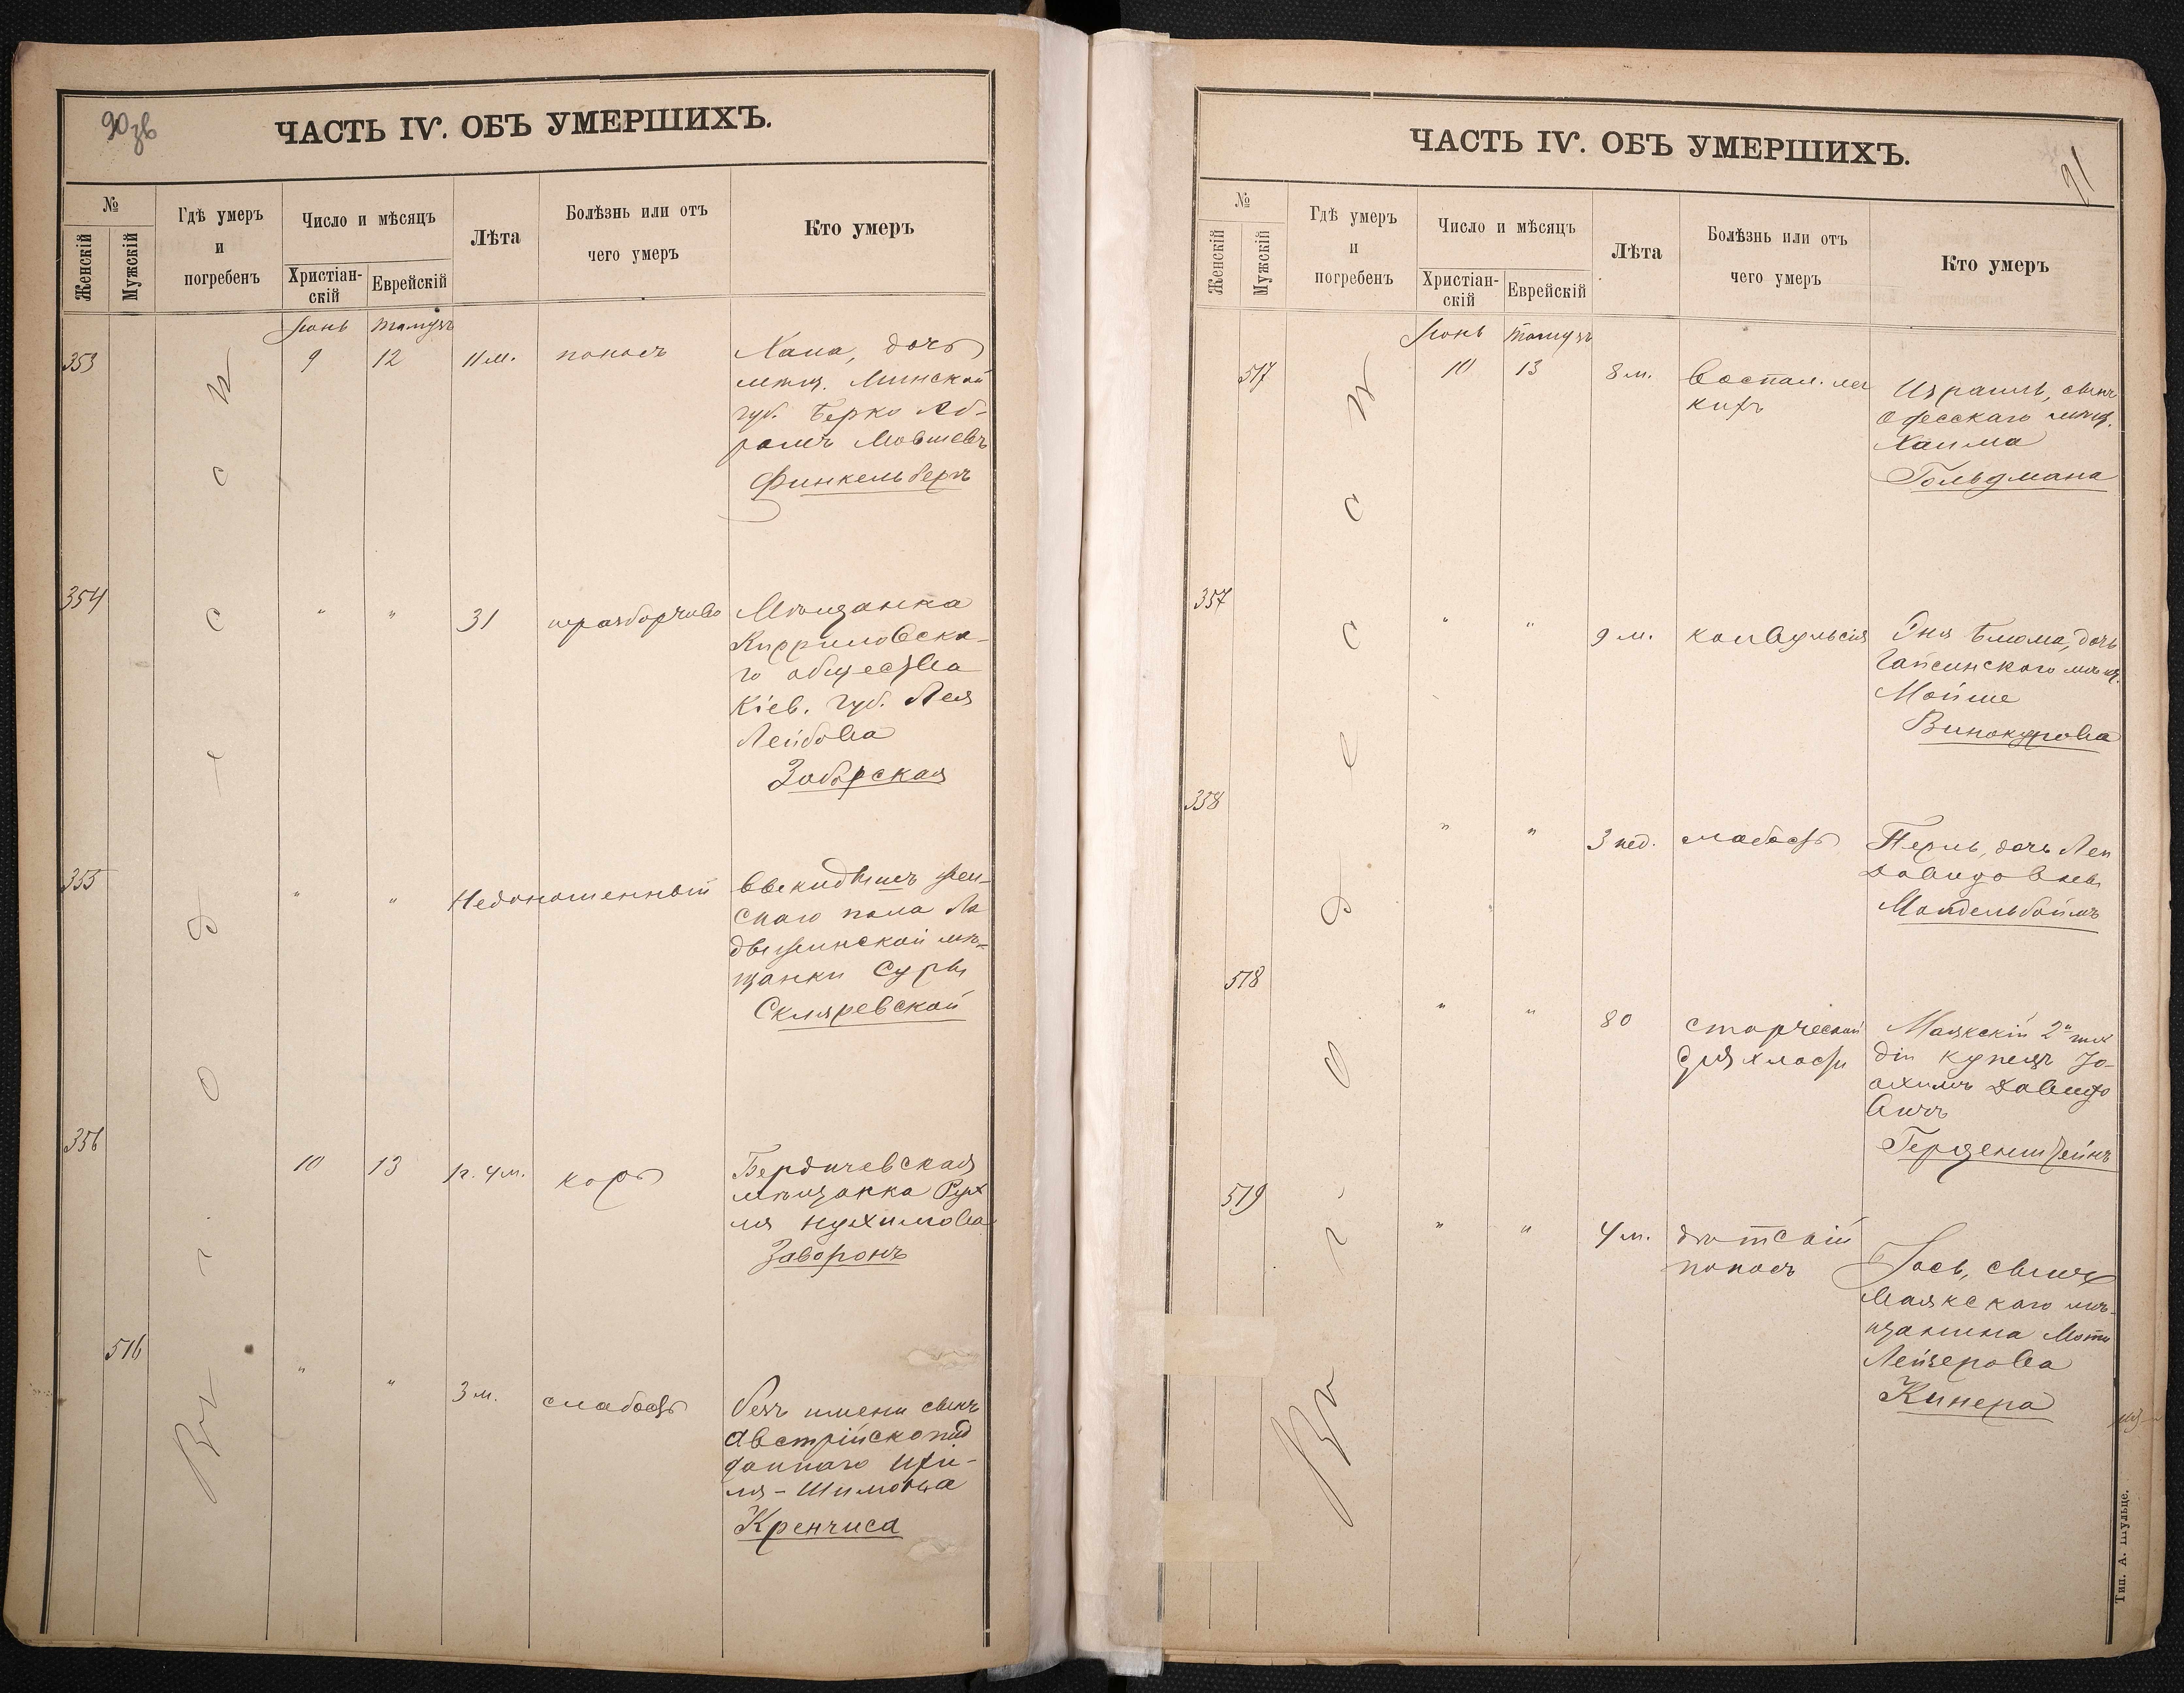 90зв
ЧАСТЬ IV. ОБЪ УМЕРШИХЪ.
№
Женскій
Мужскій
Гдѣ умеръ
и
погребенъ
Число и мѣсяцъ
Христіан-
скій
Еврейскій
Лѣта
Болѣзнь или отъ
чего умеръ
Кто умеръ
Іюнь Тамузъ
353 9 12 11 м. поносъ
Хана, дочь
мѣщ. Минской
губ. Берко Аб-
рамъ Мовшевъ
Финкельбергъ
354 " " 31 неразборчиво
Мѣщанка
го общества
Кіев. губ. Лея
Лейбова
355 " " Недоношенный
выкидышъ жен-
скаго пола Ла
дыжинской мѣ-
щанки Суры
Скляревской
356 10 13 1 г. 4 м. корь
Бердичевская
мѣщанка Рух
ля Нухимова
Заворонъ
516 " " 3 м. слабость
безъ имени сынъ
Австрійскопод
даннаго
Кренчиса
Въ г. Одессѣ
ЧАСТЬ IV. ОБЪ УМЕРШИХЪ.
91
№
Женскій
Мужскій
Гдѣ умеръ
и
погребенъ
Число и мѣсяцъ
Христіан-
скій
Еврейскій
Лѣта
Болѣзнь или отъ
чего умеръ
Кто умеръ
Іюнь Тамузъ
517 10 13 8 м. Воспал. лег
кихъ
Израиль, сынъ
Одесскаго мѣщ.
Хаима
Гольдмана
357 " " 9 м. конвульсія
Блюма, дочь
Гайсинскаго мѣщ.
Мойше
Винокурова
358 " " 3 нед. слабость
Перль, дочь Леи
Давидовны
Мандельбоймъ
518 " " 80 старческой
дряхлости
Маякскій 2й гил
діи купецъ Іо-
ахимъ Давидо
вичъ
Герценштейнъ
519 " " 4 м. дѣтскій
поносъ
Іось, сынъ
Маякскаго мѣ-
щанина Моти
Лейзерова
Кинера
Въ г. Одессѣ
Тип. А. Шульце.